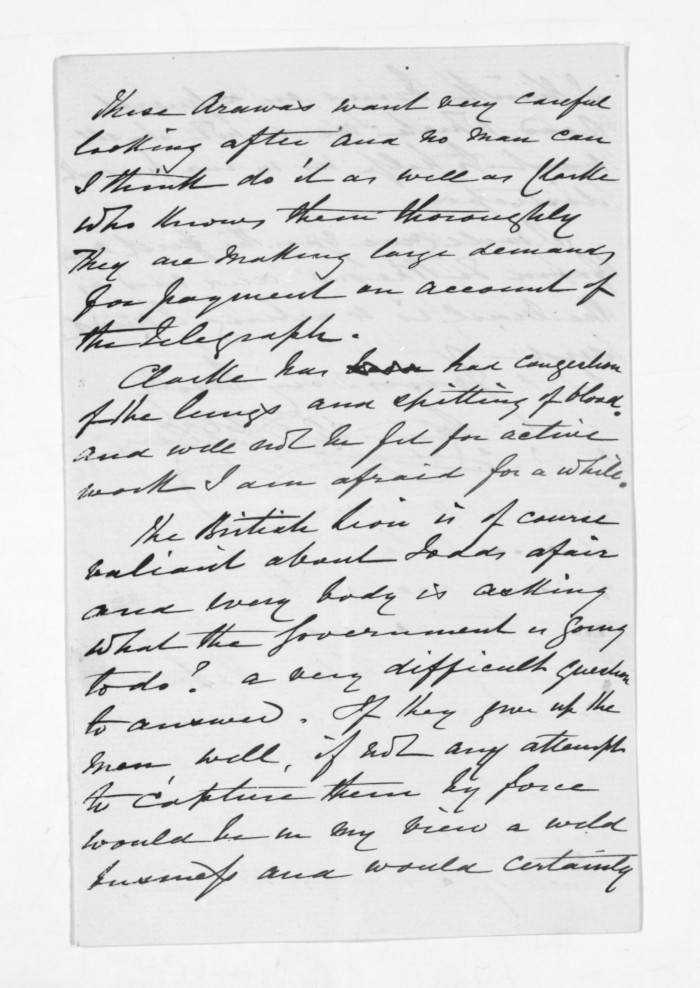 These Arawas want very careful
looking after and no man can
I think do it as well as Clarke
who knows them thoroughly
They are making large demands
for payment on account of
the Telegraph.
Clarke has had congestion
of the lungs and spitting of blood.
and will not be fit for active
work I am afraid for a while.
The British Lion is of course
valiant about Todds afair
and every body is asking
what the Government is going
to do? a very difficult question
to answer. If they give up the
men well, if not any attempt
to capture them by force
would be in my view a wild
business and would certainly